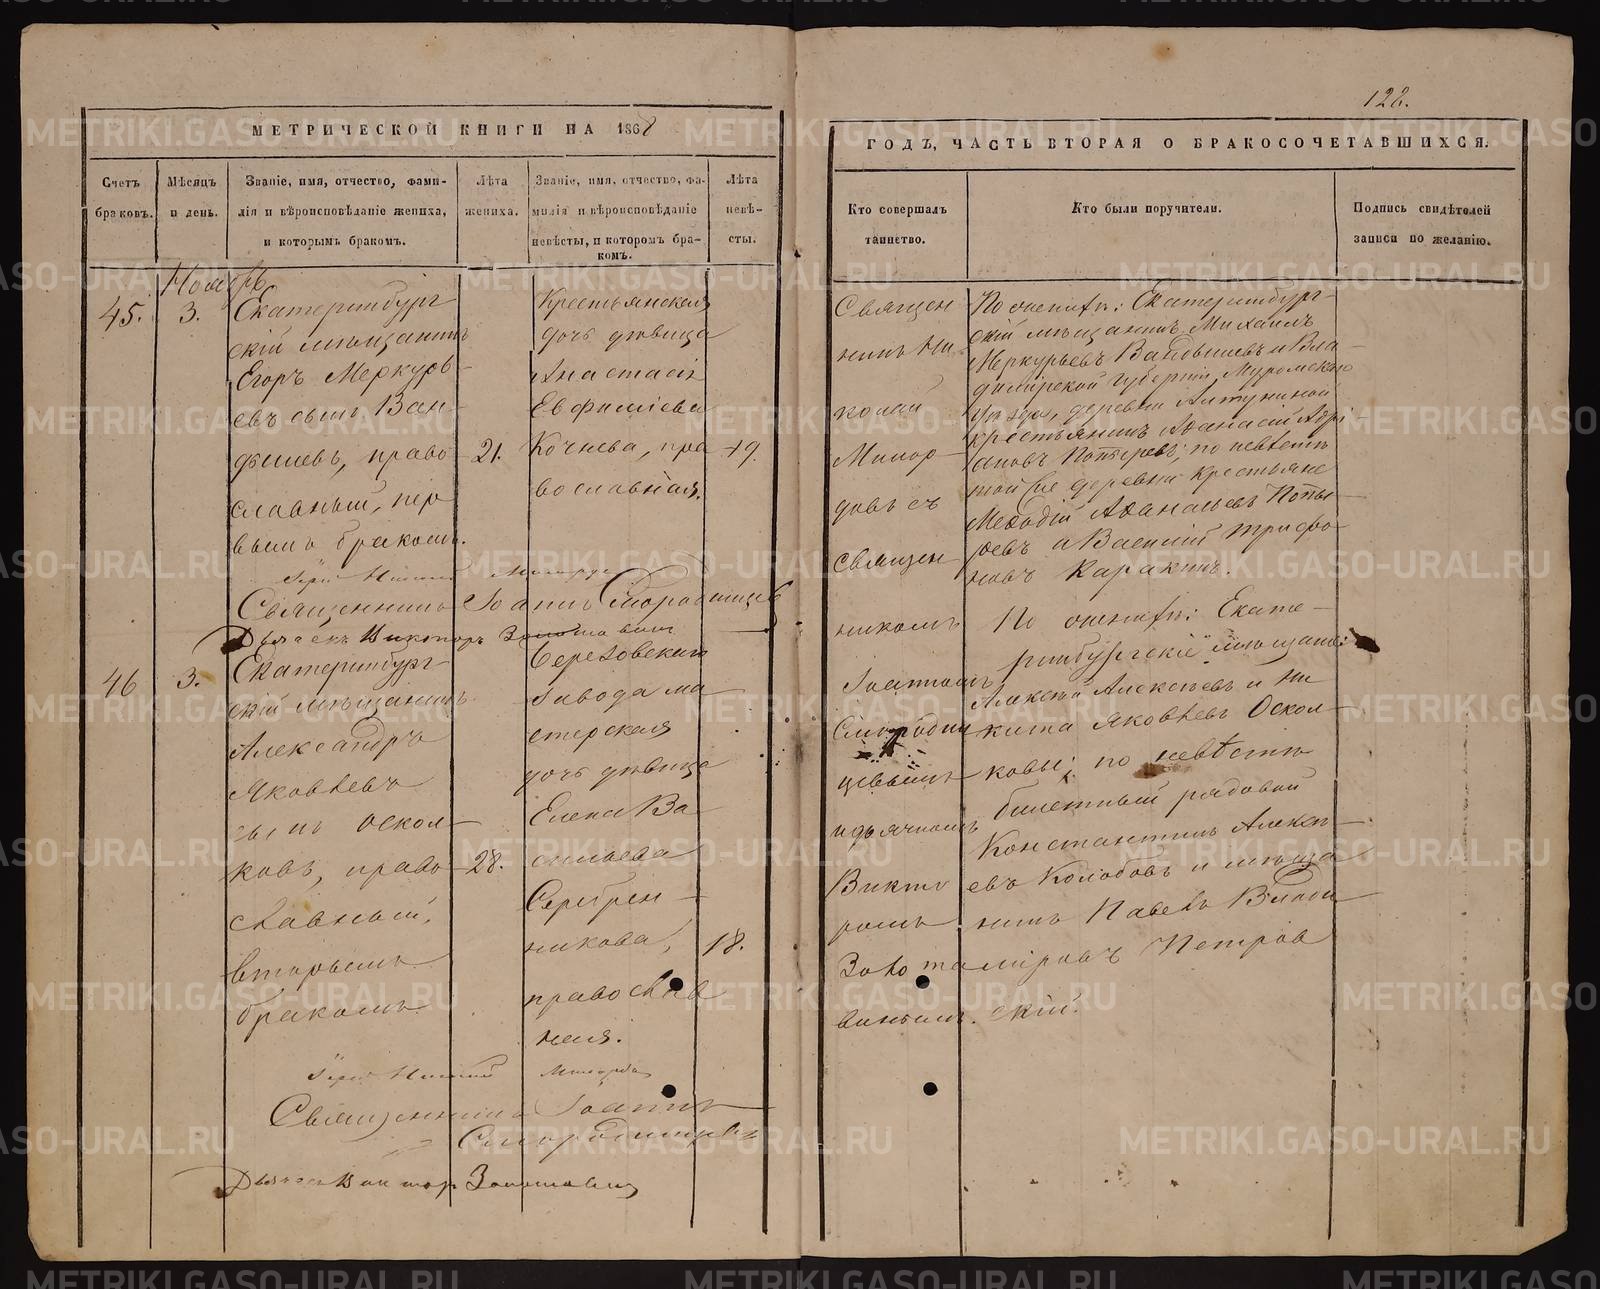 128.
МЕТРИЧЕСКОЙ КНИГИ НА 1868
Счетъ браковъ.
Мѣсяцъ и день.
Званіе, имя, отчество, фами-
лія и вѣроисповѣданіе жениха,
и которымъ бракомъ.
Лѣта жениха.
Званіе, имя, отчество, фа-
милія и вѣроисповѣданіе
невѣсты, и которомъ бра-
комъ.
Лѣта невѣ-
сты.
Ноябрь
45.
3.
Екатеринбург
скій мѣщанинъ
Егоръ Меркурь-
евъ сынъ Ван-
дышевъ, право-
славный, пер
вымъ бракомъ.
21.
Крестьянская
дочь дѣвица
Анастасія
Евфиміева
Кочнева, пра-
вославная.
19.
Священникъ Іоаннъ Смородинцевъ
Дьячекъ Викторъ Золотавинъ
46
3.
Екатеринбург-
скій мѣщанинъ
Александръ
Яковлевъ
сынъ Оскол-
ковъ, право-
славный,
вторымъ
бракомъ.
28.
Березовскаго
завода ма-
стерская
дочь дѣвица
Елена Ва-
сильева
Серебрен-
никова,
православ
ная.
18.
Священникъ Іоаннъ
Смородинцевъ
Дьячекъ Викторъ Золотавинъ
ГОДЪ, ЧАСТЬ ВТОРАЯ О БРАКОСОЧЕТАВШИХСЯ.
Кто совершалъ
таинство.
Кто были поручители.
Подпись свидѣтелей
записи по желанію.
Священ
никъ Ни
колай
Минор
довъ съ
священ
никомъ
Іоанномъ
Смородин
цевымъ
и дьячкомъ
Викто
ромъ
Золота
винымъ.
По женихѣ: Екатеринбург-
скій мѣщанинъ Михаилъ
Меркурьевъ Вандышевъ и Вла-
димірской губерніи, Муромскаго
уѣзда, деревни Алтуниной
крестьянинъ Афанасій Адрі-
ановъ
по невѣстѣ
той же деревни крестьяне
Мефодій Афанасьевъ
и Василій Трифо-
новъ
По женихѣ: Екате-
ринбургскіе мѣщане:
Алексѣй Алексѣевъ и Ни
кита Яковлевъ Оскол-
ковы; по невѣстѣ
билетный рядовой
Константинъ Алексѣ-
евъ Колобовъ и мѣща
нинъ Павелъ Влади-
міровъ Петров
скій.